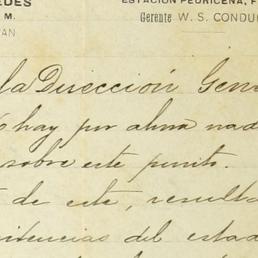 EDES
M.
AN
ESTACIÓN PEDRICEÑA, F
Gerente W. S. CONDU
la Dirección Gene
hay por ahora nad
sobre este punto.
de este, resulta
itencias del estad